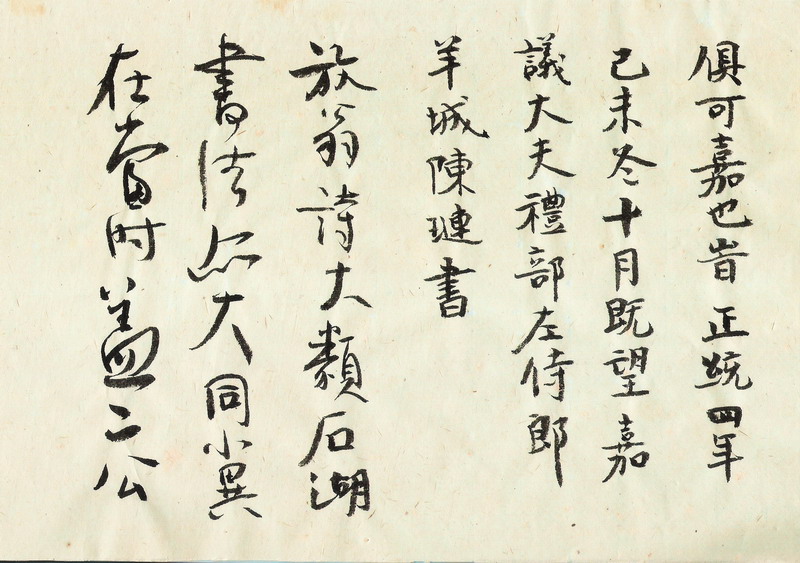 俱可嘉也旹正統四年
己未冬十月既望嘉
議大夫禮部左侍郎
羊城陳璉書
放翁詩大類石湖
書法亦大同小異
在當时盖二公